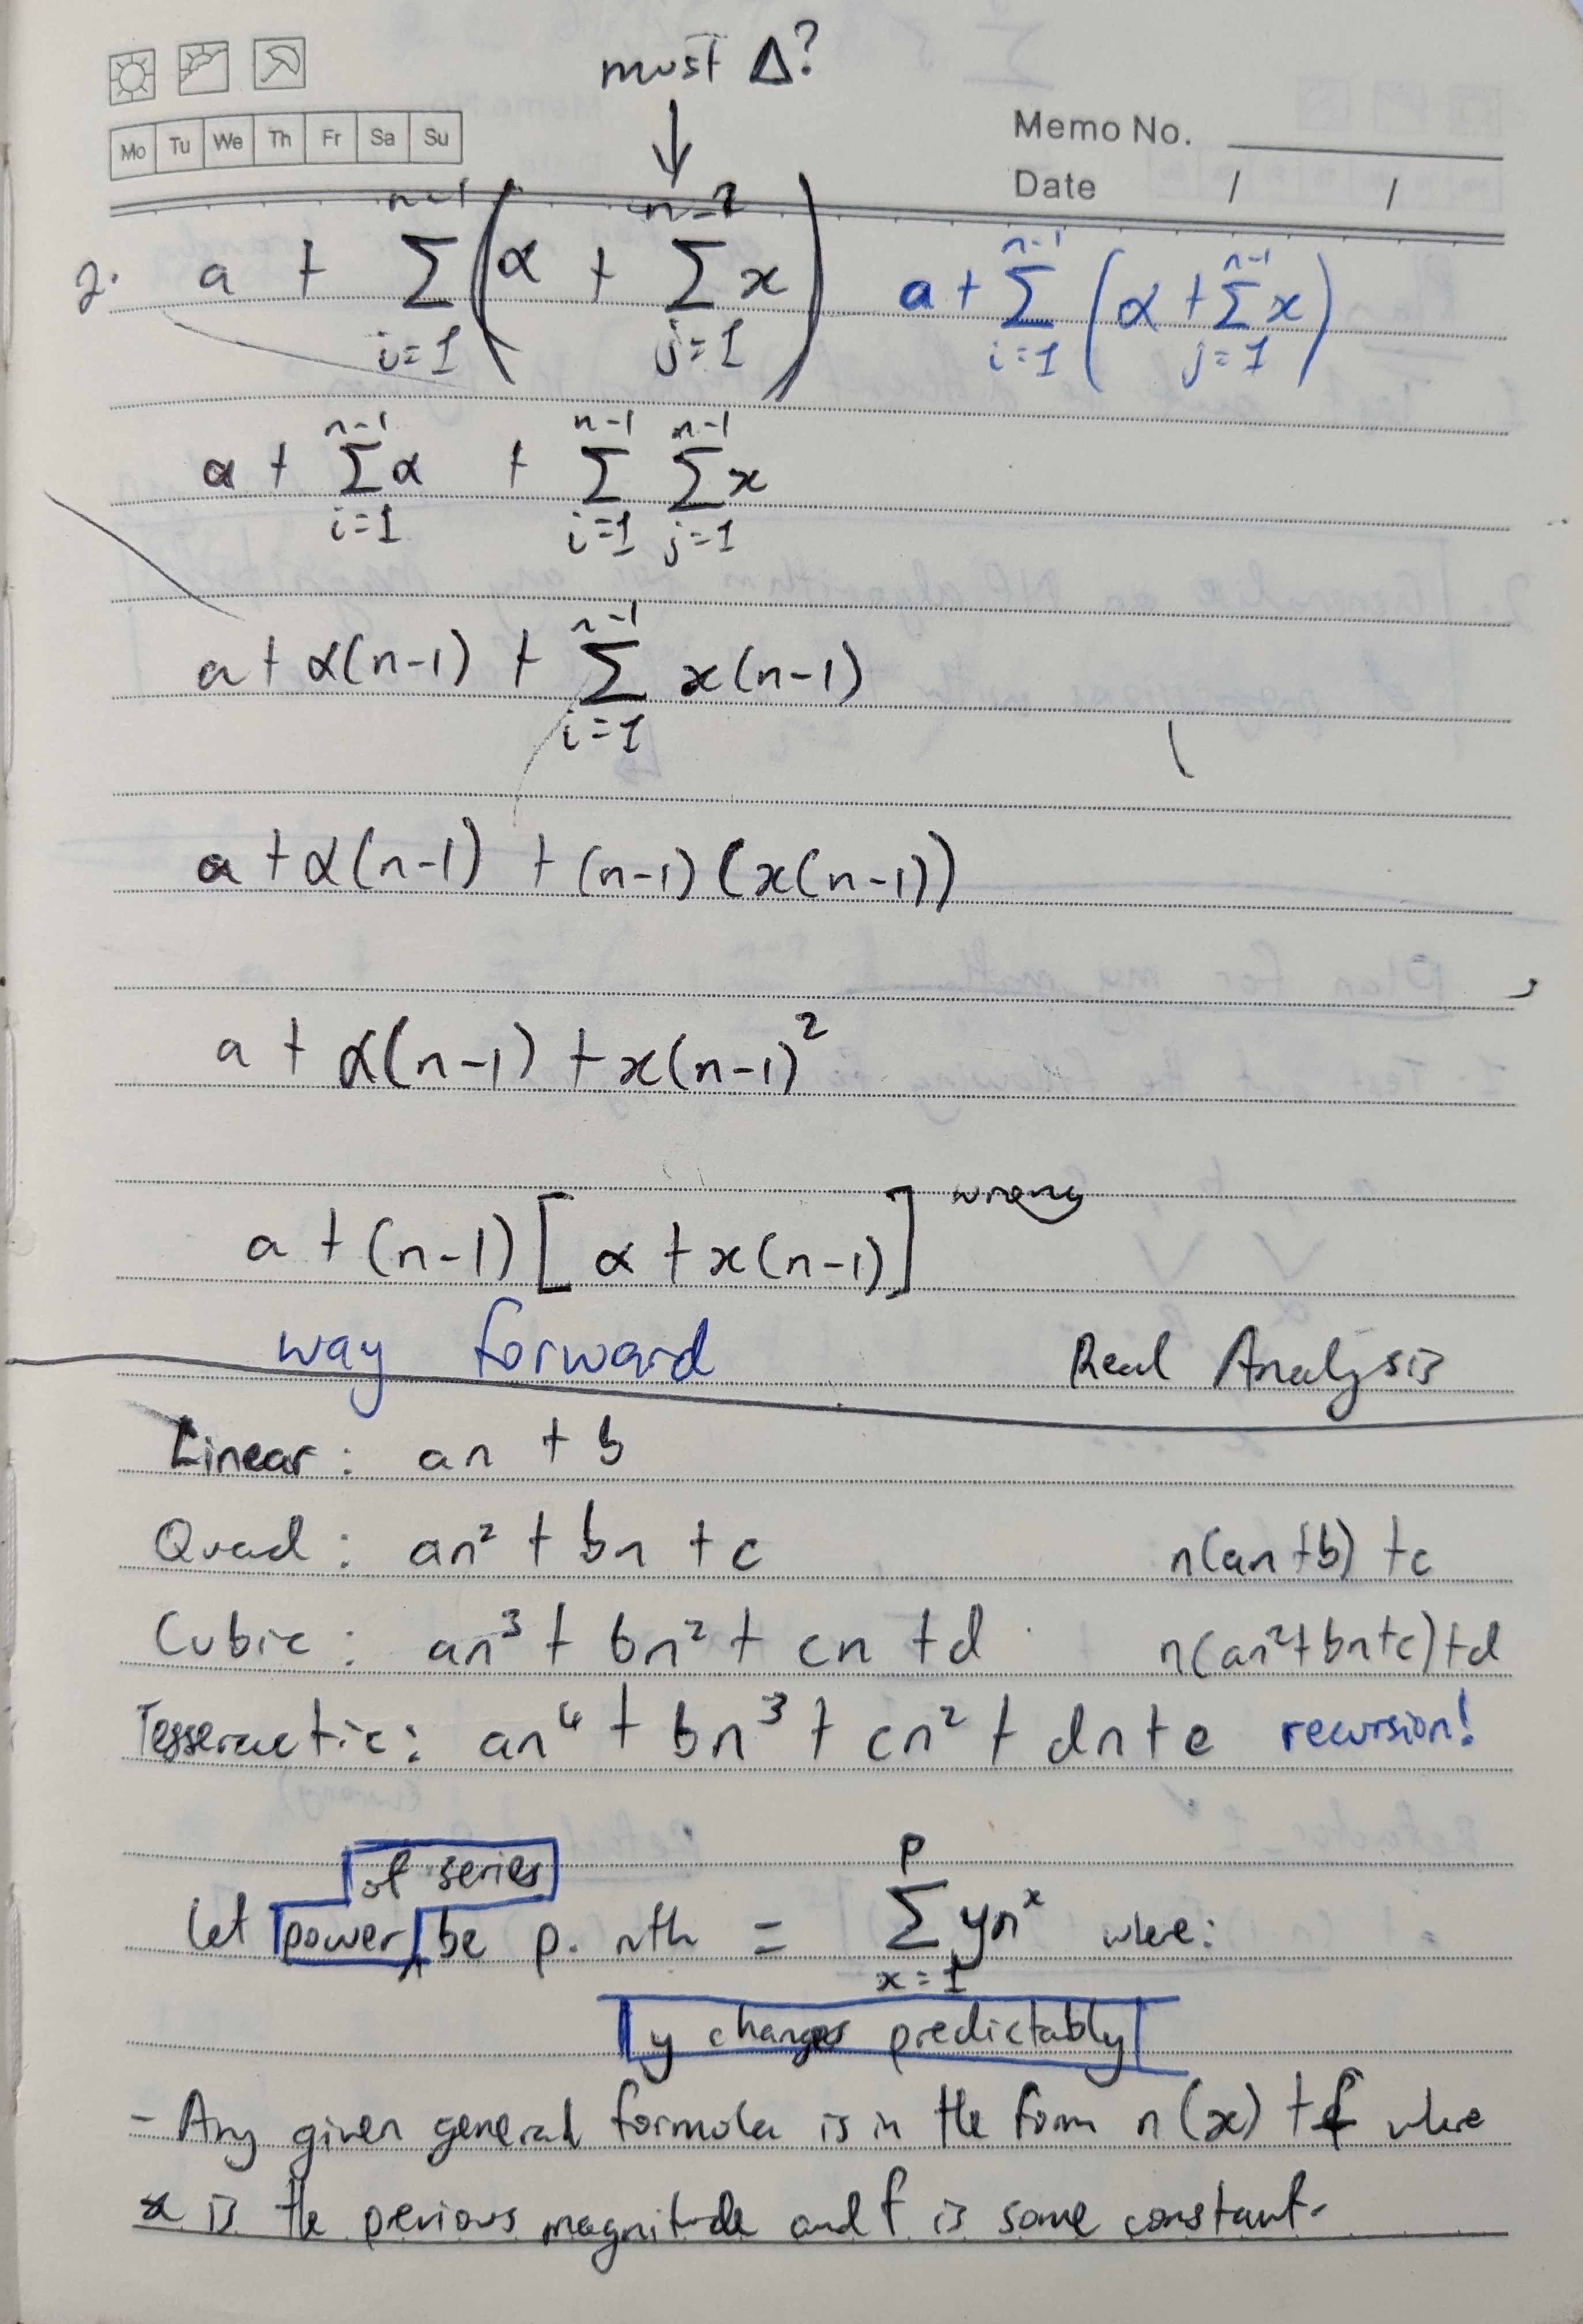 must Δ?
↓
Mo Tu We Th Fr Sa Su
Memo No.
Date / /
2. a + Σ_{i=1}^{n-1} (α + Σ_{j=1}^{n-2} x) a + Σ_{i=1}^{n-1} (α + Σ_{j=1}^{n-1} x)
a + Σ_{i=1}^{n-1} α + Σ_{i=1}^{n-1} Σ_{j=1}^{n-1} x
a + α(n-1) + Σ_{i=1}^{n-1} x(n-1)
a + α(n-1) + (n-1)(x(n-1))
a + α(n-1) + x(n-1)²
a + (n-1)[α + x(n-1)] wrong
way forward Real Analysis
Linear: an + b
Quad: an² + bn + c n(an+b) + c
Cubic: an³ + bn² + cn + d n(an²+bn+c)+d
Tesseractic: an⁴ + bn³ + cn² + dn + e recursion!
of series
Let power be p. nth = Σ_{x=1}^{p} yn^x where:
y changes predictably
- Any given general formula is in the form n(x) + f where
x is the previous magnitude and f is some constant.